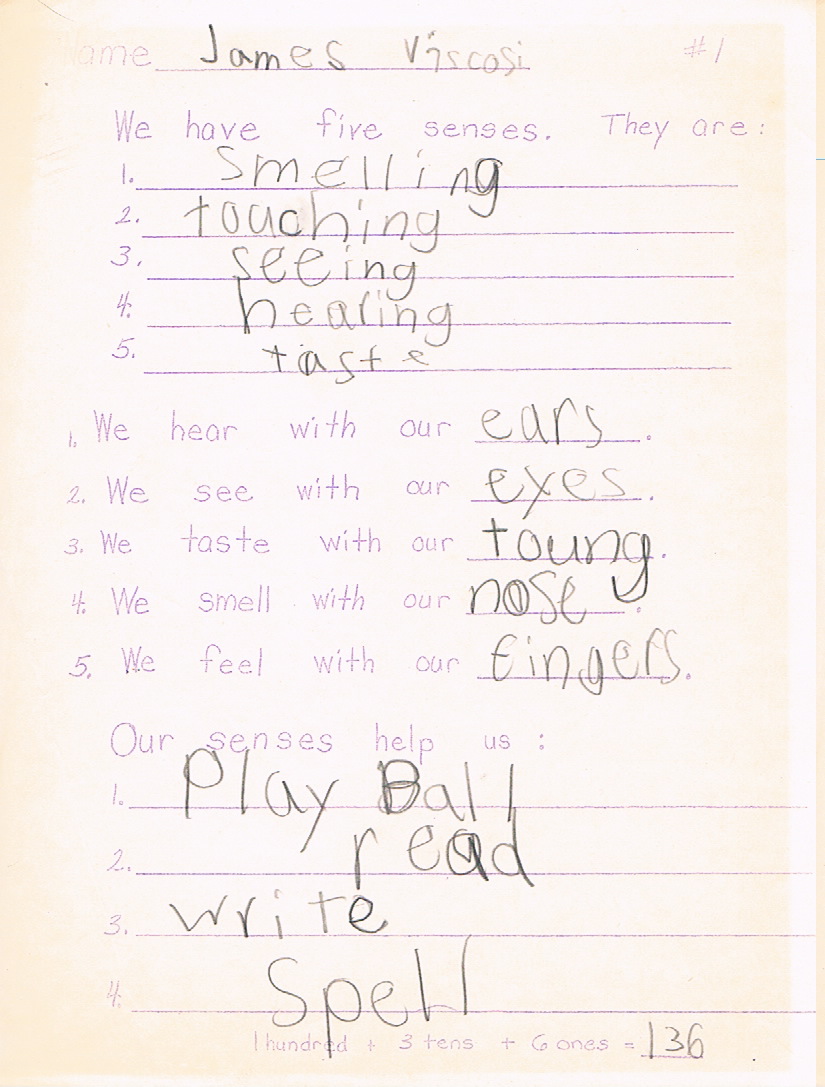 Name James Viscosi #1
We have five senses. They are:
1. smelling
2. touching
3. seeing
4. hearing
5. taste
1. We hear with our ears.
2. We see with our eyes.
3. We taste with our toung.
4. We smell with our nose.
5. We feel with our fingers.
Our senses help us:
1. Play Ball
2. read
3. write
4. Spell
1 hundred + 3 tens + 6 ones = 136